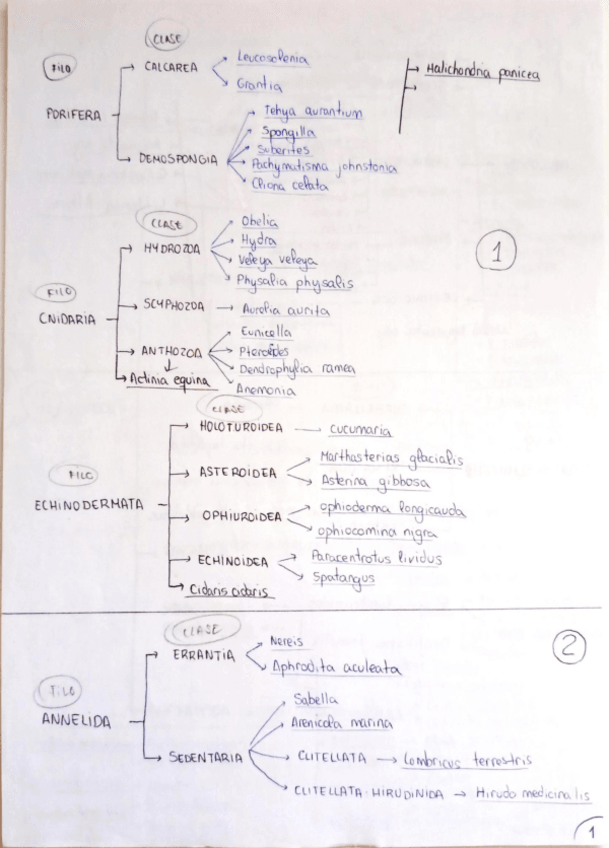 CLASE
FILO
CALCAREA
Leucosolenia
Grantia
Halichondria panicea
PORIFERA
DEMOSPONGIA
Tehya aurantium
Spongilla
Suberites
Pachymatisma johnstonia
Cliona celata
CLASE
HYDROZOA
Obelia
Hydra
Veleya veleya
Physalia physalis
1
FILO
CNIDARIA
SCYPHOZOA
Aurelia aurita
ANTHOZOA
Eunicella
Pteroeides
Dendrophylia ramea
Anemonia
Actinia equina
CLASE
HOLOTUROIDEA
cucumaria
FILO
ECHINODERMATA
ASTEROIDEA
Marthasterias glacialis
Asterina gibbosa
OPHIUROIDEA
ophioderma longicauda
ophiocomina nigra
ECHINOIDEA
Paracentrotus lividus
Spatangus
Cidaris cidaris
CLASE
2
ERRANTIA
Nereis
Aphrodita aculeata
FILO
ANNELIDA
SEDENTARIA
Sabella
Arenicola marina
CLITELLATA → Lombricus terrestris
CLITELLATA-HIRUDINIDA → Hirudo medicinalis
1